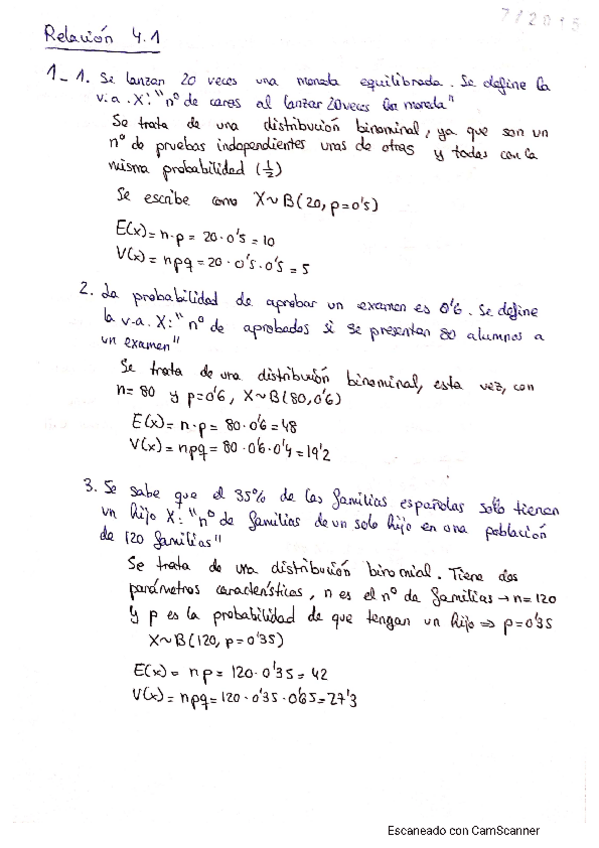 7/2015
Relación 4.1
1_ 1. Se lanzan 20 veces una moneda equilibrada. Se define la
v.a. X: "nº de caras al lanzar 20 veces la moneda"
Se trata de una distribución binominal, ya que son un
nº de pruebas independientes unas de otras y todas con la
misma probabilidad (1/2)
Se escribe como X~B(20, p=0'5)
E(x)= n·p = 20·0'5 = 10
V(x)= npq = 20·0'5·0'5 = 5
2. La probabilidad de aprobar un examen es 0'6. Se define
la v.a. X: "nº de aprobados si se presentan 80 alumnos a
un examen"
Se trata de una distribución binominal, esta vez, con
n= 80 y p=0'6, X~B(80,0'6)
E(x)= n·p= 80·0'6=48
V(x)= npq= 80·0'6·0'4=19'2
3. Se sabe que el 35% de las familias españolas solo tienen
un hijo X: "nº de familias de un solo hijo en una población
de 120 familias"
Se trata de una distribución binomial. Tiene dos
parámetros característicos, n es el nº de familias → n=120
y p es la probabilidad de que tengan un hijo ⇒ p=0'35
X~B(120, p=0'35)
E(x)= np= 120·0'35= 42
V(x)= npq= 120·0'35·0'65=27'3
Escaneado con CamScanner